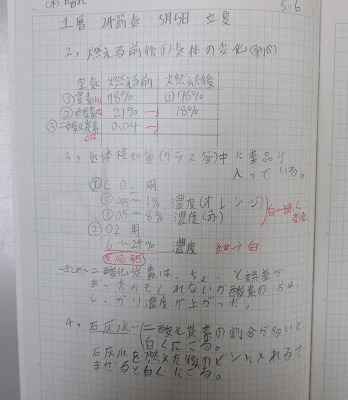 (木) 晴れ
5.6
土屋 24節気 5月5日 立夏
2,燃える前後の気体の変化(割合)
空気 燃える前 燃えた後
①窒素 78% ①78%
②酸素 21% → 18%
③二酸化炭素 0.04 →
CO2
3,気体検知管(ガラス管)中に薬品が
入っている。
①CO2用
0.03〜1% 濃度(オレンジ)
0.5〜8% 濃度(赤)
②O2用
6〜24% 濃度
反応熱
二酸化炭素は、ちょっと誤差が
あったかもしれないが酸素の方は、
しっかり濃度が上がった。
4,石灰水…二酸化炭素の割合が多いと
白くにごる。
石灰水を燃えた後のビンに入れて
まぜると白くにごる。